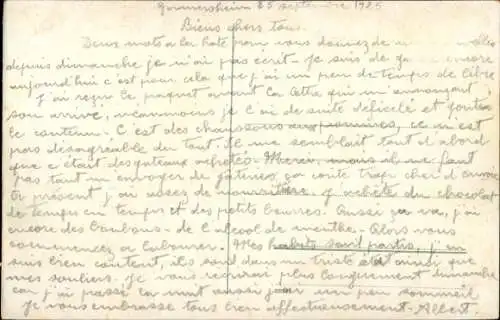 Gommersheim 25 septembre 1925
Biens chers tous.
Deux mots a la hate pour vous donner de
depuis dimanche je n'ai pas écrit. Je suis de encore
aujourd'hui c'est pour cela que j'ai un peu de temps de libre
J'ai reçu le paquet avant la lettre qui m'annonçait
son arrivé, néanmoins je l'ai de suite déficelé et
le contenu. C'est des chaussons aux pommes, ce n'est
pas désagréable du tout. Il me semblait tout d'abord
que c'était des gateaux achetés. Merci, mais il ne faut
pas tant m'envoyer de gateries, ça coute trop cher d'envoie
A présent j'ai assez de nourriture. J'achète du chocolat
de temps en temps et des petits beurres. Aussi ça va, j'ai
encore des bonbons - de l'alcool de menthe. Alors vous
commencez a labourer. Mes habits sont partis, j'en
suis bien content, ils sont dans un triste état ainsi que
mes souliers. Je vous récrirai plus longuement dimanche
car j'ai passé la nuit aussi j'ai un peu sommeil
Je vous embrasse tous bien affectueusement - Albert.